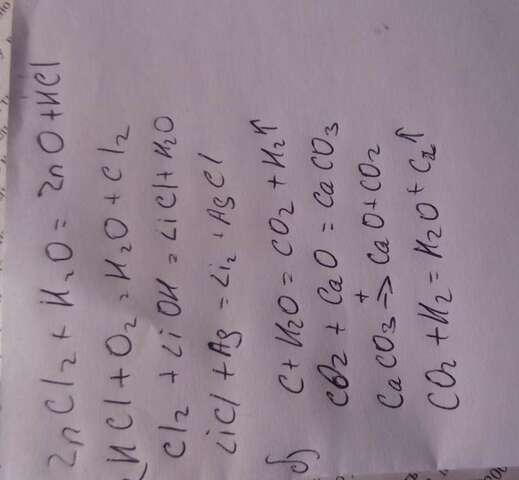 ZnCl₂ + H₂O = ZnO + HCl
HCl + O₂ = H₂O + Cl₂
Cl₂ + LiOH = LiCl + H₂O
LiCl + Ag = Li₂ + AgCl
б) C + H₂O = CO₂ + H₂↑
CO₂ + CaO = CaCO₃
CaCO₃ =t> CaO + CO₂
CO₂ + H₂ = H₂O + C₂↑